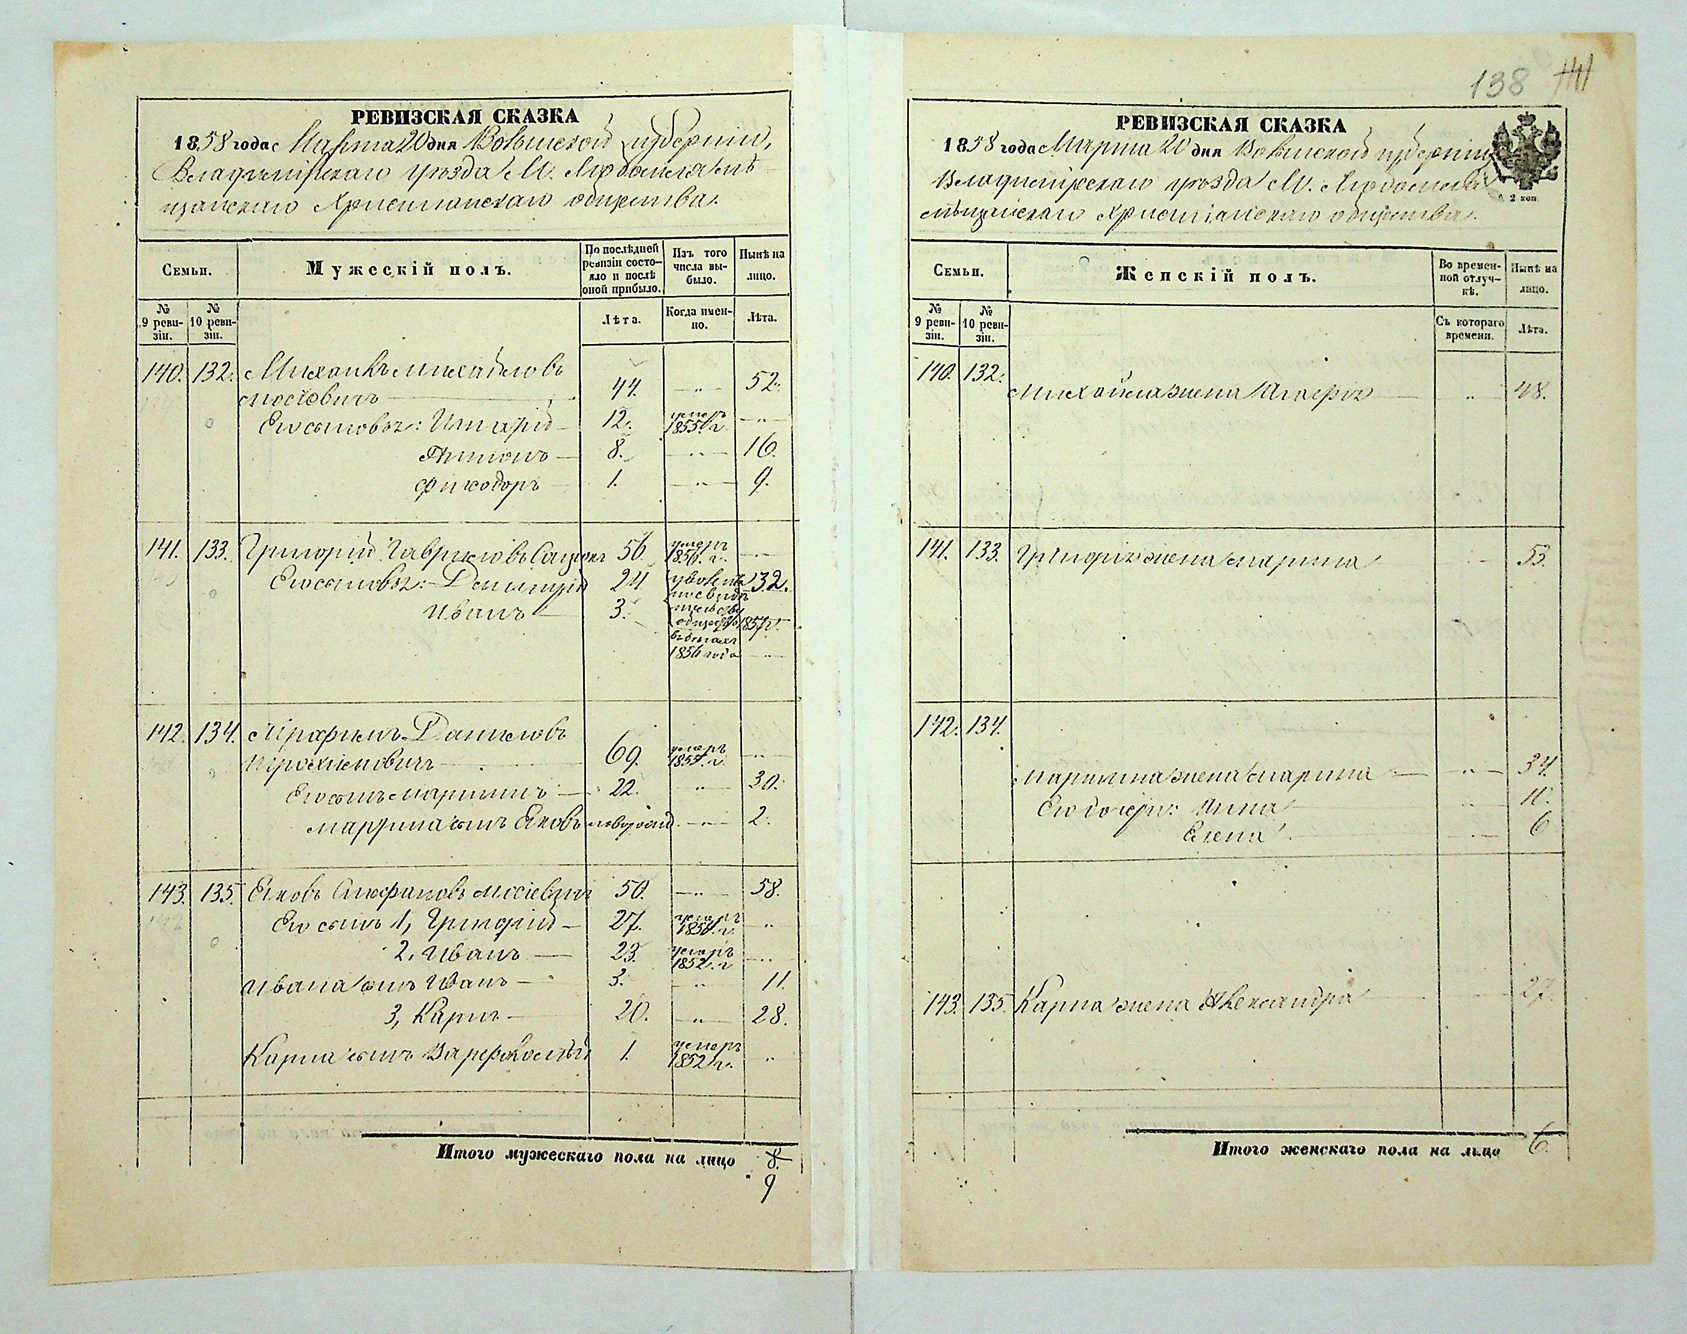 138
РЕВИЗСКАЯ СКАЗКА
1858 года Марта 20 дня Волынской губерніи,
Владимірскаго уѣзда М. Любомля мѣ-
щанскаго Христіанскаго общества.
Семьи.
Мужескій полъ.
По послѣдней ревизіи состояло и послѣ оной прибыло.
Изъ того числа выбыло.
Нынѣ на лицо.
№ 9 ревизіи.
№ 10 ревизіи.
Лѣта.
Когда именно.
Лѣта.
140. 132. Михаилъ Михайловъ
44. — „ — 52.
Его сыновья: Григорій — 12. умеръ 1855 г. — „ —
8. — „ — 16.
Ѳиодоръ — 1. — „ — 9.
141. 133. Григорій Гавриловъ 56 умеръ 1856 г. — „ —
Его сыновья: Дмитрій 24 32.
Иванъ — 3. 1857 г.
1856 года — „ —
142. 134. Даниловъ
69. умеръ 1854 г. — „ —
Его сынъ Мартинъ — 22. — „ — 30.
Мартина сынъ Яковъ новорожд. — „ — 2.
143. 135. Яковъ Стефановъ 50. — „ — 58.
Его сынъ 1, Григорій — 27. умеръ 1854 г. „
2, Иванъ — 23. умеръ 1852 г. — „ —
Ивана сынъ Иванъ — 3. — „ — 11.
3, Карпъ — 20. — „ — 28.
Карпа сынъ Варфоломей 1. умеръ 1852 г. „
Итого мужескаго пола на лицо 8.
9
РЕВИЗСКАЯ СКАЗКА
1858 года Марта 20 дня Волынской губерніи
Владимірскаго уѣзда М. Любомля
мѣщанскаго Христіанскаго общества.
2 коп.
Семьи.
Женскій полъ.
Во временной отлучкѣ.
Нынѣ на лицо.
№ 9 ревизіи.
№ 10 ревизіи.
Съ котораго времени.
Лѣта.
140. 132.
Михайла жена — „ — 48.
141. 133. Григорія жена Марина — „ — 53.
142. 134.
Мартина жена Марина — „ — 34.
Его дочери: Анна — „ — 11.
Елена — „ — 6
143. 135. Карпа жена Александра 27.
Итого женскаго пола на лицо 6.